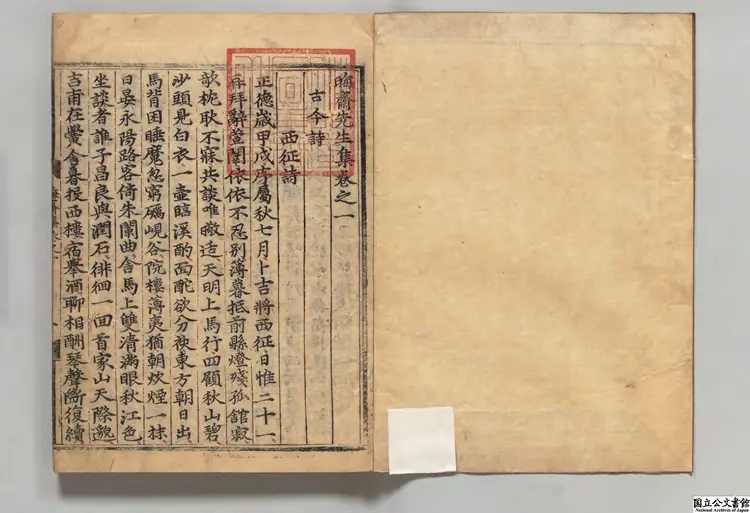 晦齋先生集卷之一
古今詩
西征詩
正德歲甲戌序屬秋七月卜吉將西征日惟二十一
再拜辭萱闈依依不忍別薄暮抵前縣燈殘孤舘寂
欹枕耿不寐共談唯璥造天明上馬行四顧秋山碧
沙頭見白衣一壺臨溪酌面酡欲分袂東方朝日出
馬背困睡魔忽窮礪峴谷院樓薄夷猶朝炊煙一抹
日晏永陽路客倚朱闌曲舍馬上雙清滿眼秋江色
坐談者誰子昌良與潤石徘徊一回首家山天際邈
吉甫在黌舍暮投西樓宿擧酒聊相酬琴聲斷復續
国立公文書館
National Archives of Japan